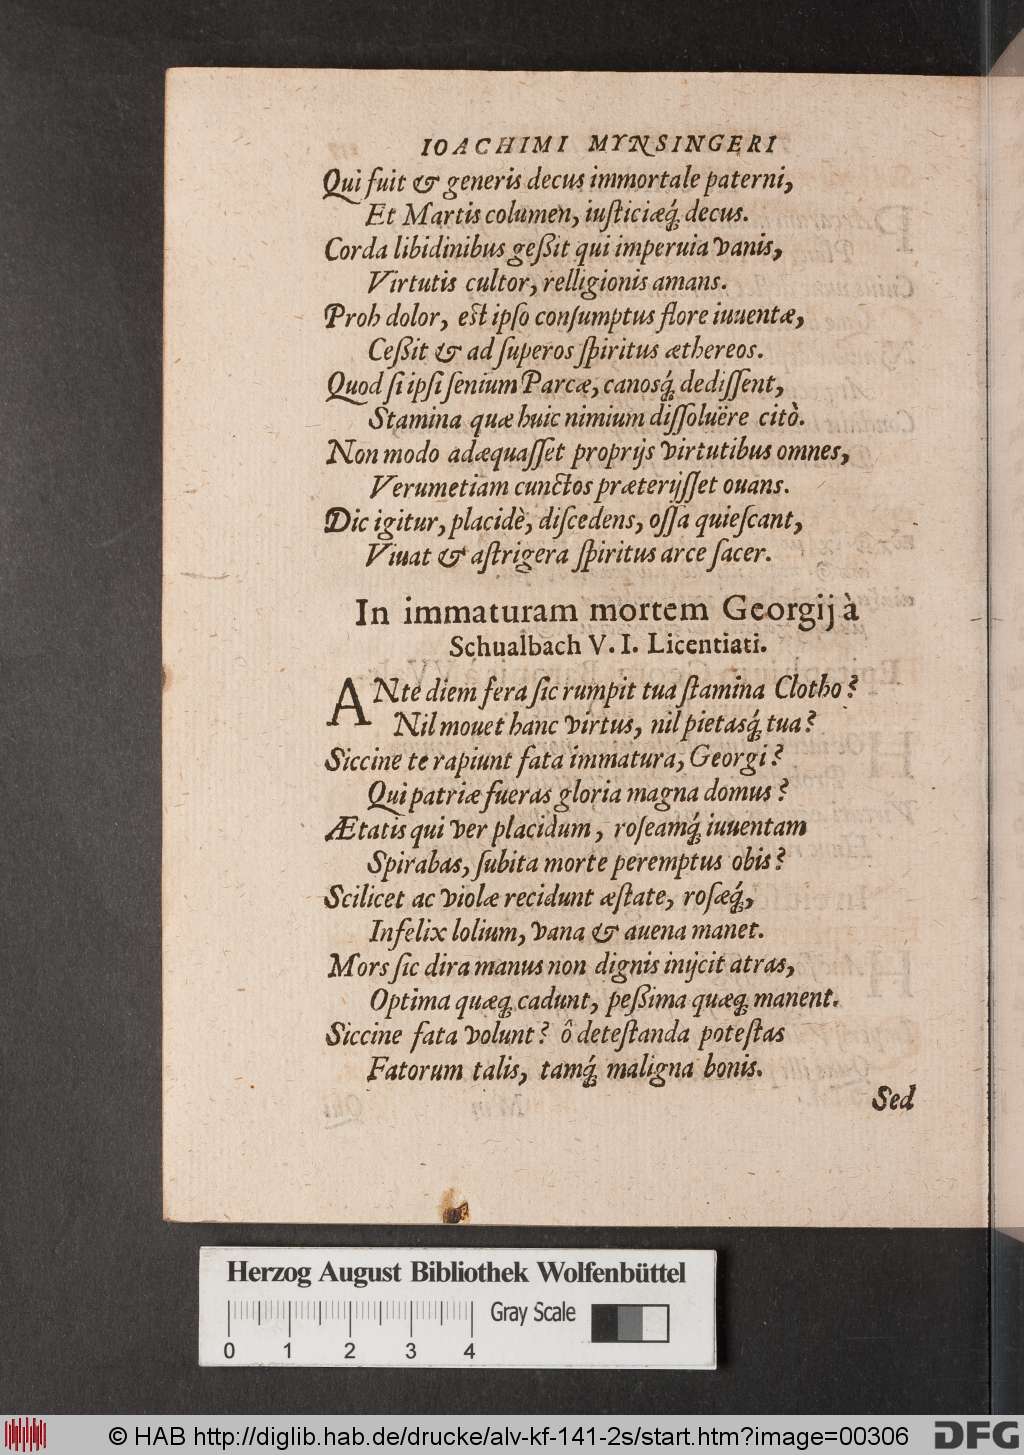 IOACHIMI MYNSINGERI
Qui fuit & generis decus immortale paterni,
Et Martis columen, iuſticiæq́; decus.
Corda libidinibus geßit qui imperuia vanis,
Virtutis cultor, relligionis amans.
Proh dolor, est ipſo conſumptus flore iuuentæ,
Ceßit & ad ſuperos ſpiritus æthereos.
Quod ſi ipſi ſenium Parcæ, canosq́; dediſſent,
Stamina quæ huic nimium diſſoluëre citò.
Non modo adæquaſſet proprijs virtutibus omnes,
Verumetiam cunctos præterijſſet ouans.
Dic igitur, placidè, diſcedens, oſſa quieſcant,
Viuat & aſtrigera ſpiritus arce ſacer.
In immaturam mortem Georgij à
Schualbach V. I. Licentiati.
ANte diem fera ſic rumpit tua ſtamina Clotho?
Nil mouet hanc virtus, nil pietasq́; tua?
Siccine te rapiunt fata immatura, Georgi?
Qui patriæ fueras gloria magna domus?
Ætatis qui ver placidum, roſeamq́; iuuentam
Spirabas, ſubita morte peremptus obis?
Scilicet ac violæ recidunt æſtate, roſæq́;,
Infelix lolium, vana & auena manet.
Mors ſic dira manus non dignis inijcit atras,
Optima quæq; cadunt, peßima quæq; manent.
Siccine fata volunt? ô deteſtanda poteſtas
Fatorum talis, tamq́; maligna bonis.
Sed
Herzog August Bibliothek Wolfenbüttel
Gray Scale
0 1 2 3 4
© HAB http://diglib.hab.de/drucke/alv-kf-141-2s/start.htm?image=00306
DFG